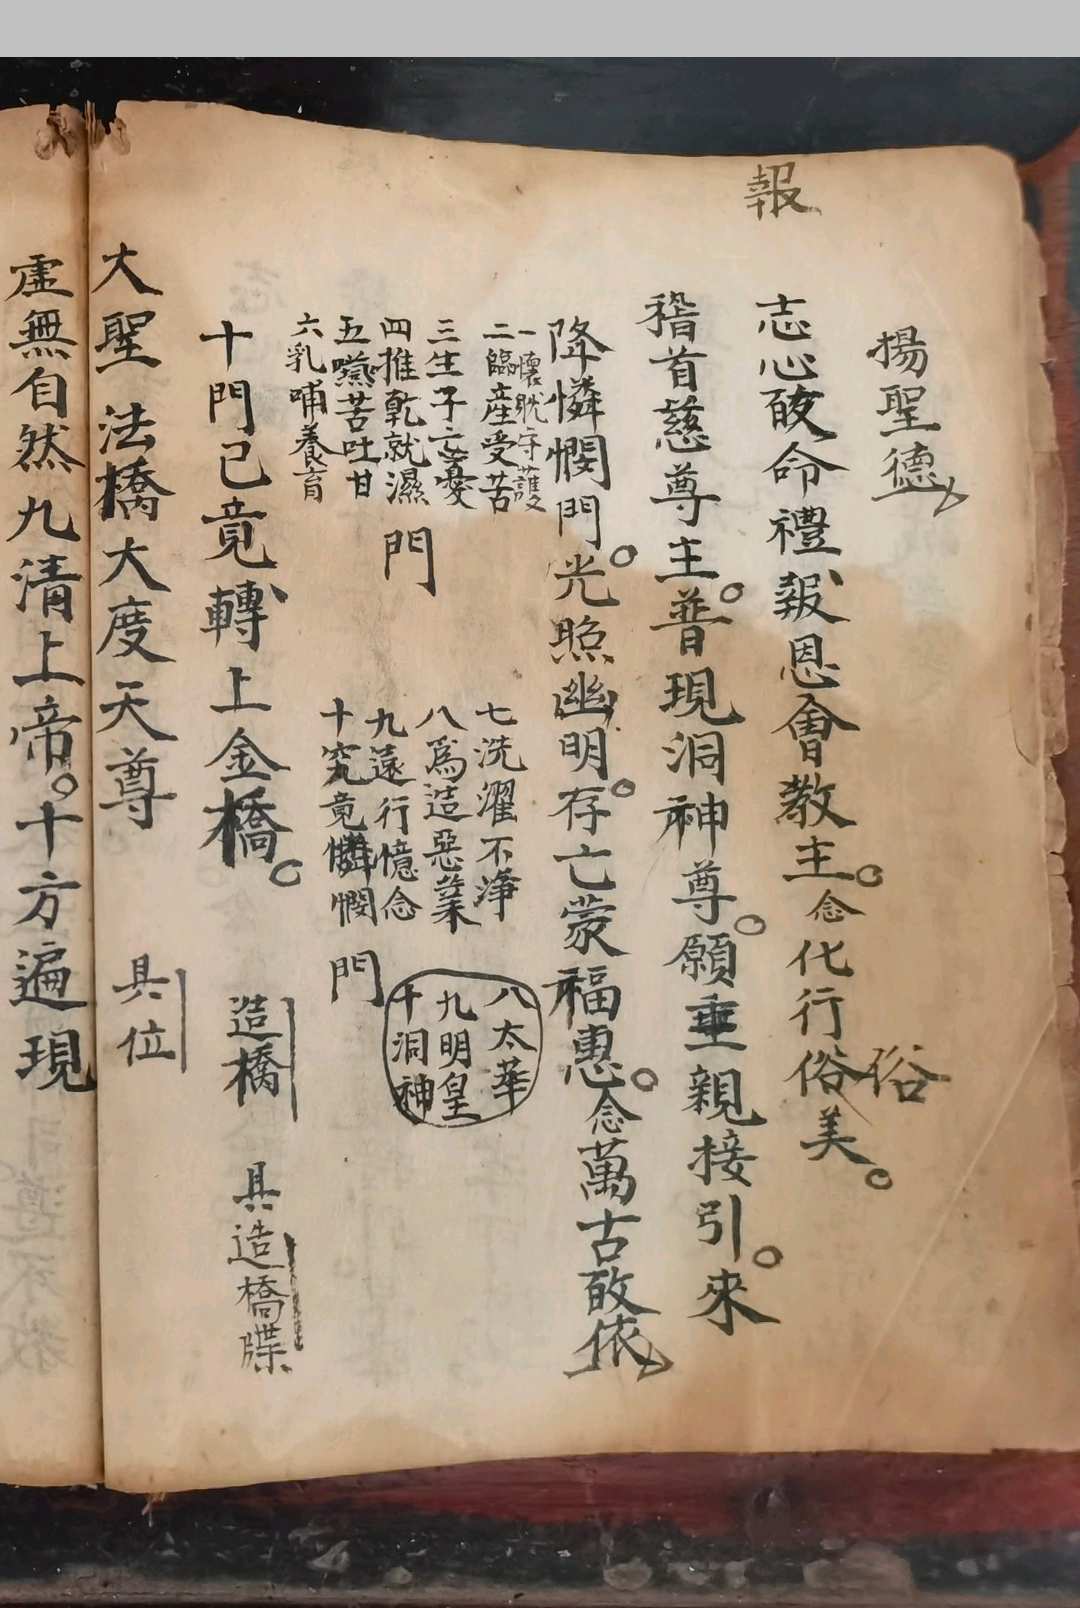 報
揚聖德
志心皈命禮報恩會教主。念化行俗美。
俗
稽首慈尊主。普現洞神尊。願垂親接引。來
降憐憫門。光照幽明。存亡蒙福惠。念萬古皈依
一懷躭守護
二臨産受苦
三生子忘憂
四推乾就濕
五嚥苦吐甘
六乳哺養育
門
七洗濯不淨
八爲造惡業
九遠行憶念
十究竟憐憫
門
八太華
九明皇
十洞神
十門已竟轉上金橋。
造橋
具造橋牒
大聖法橋大度天尊
具位
虛無自然九清上帝。十方遍現